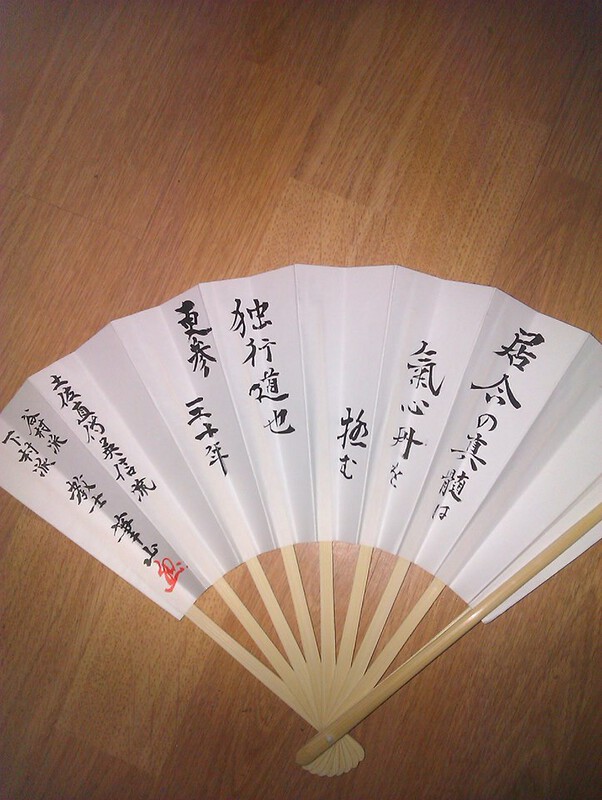 居合の真髄は
氣心丹を
極む
独行道也
更参 三十年
土佐直伝英信流
谷村派
下村派
教士 峯山